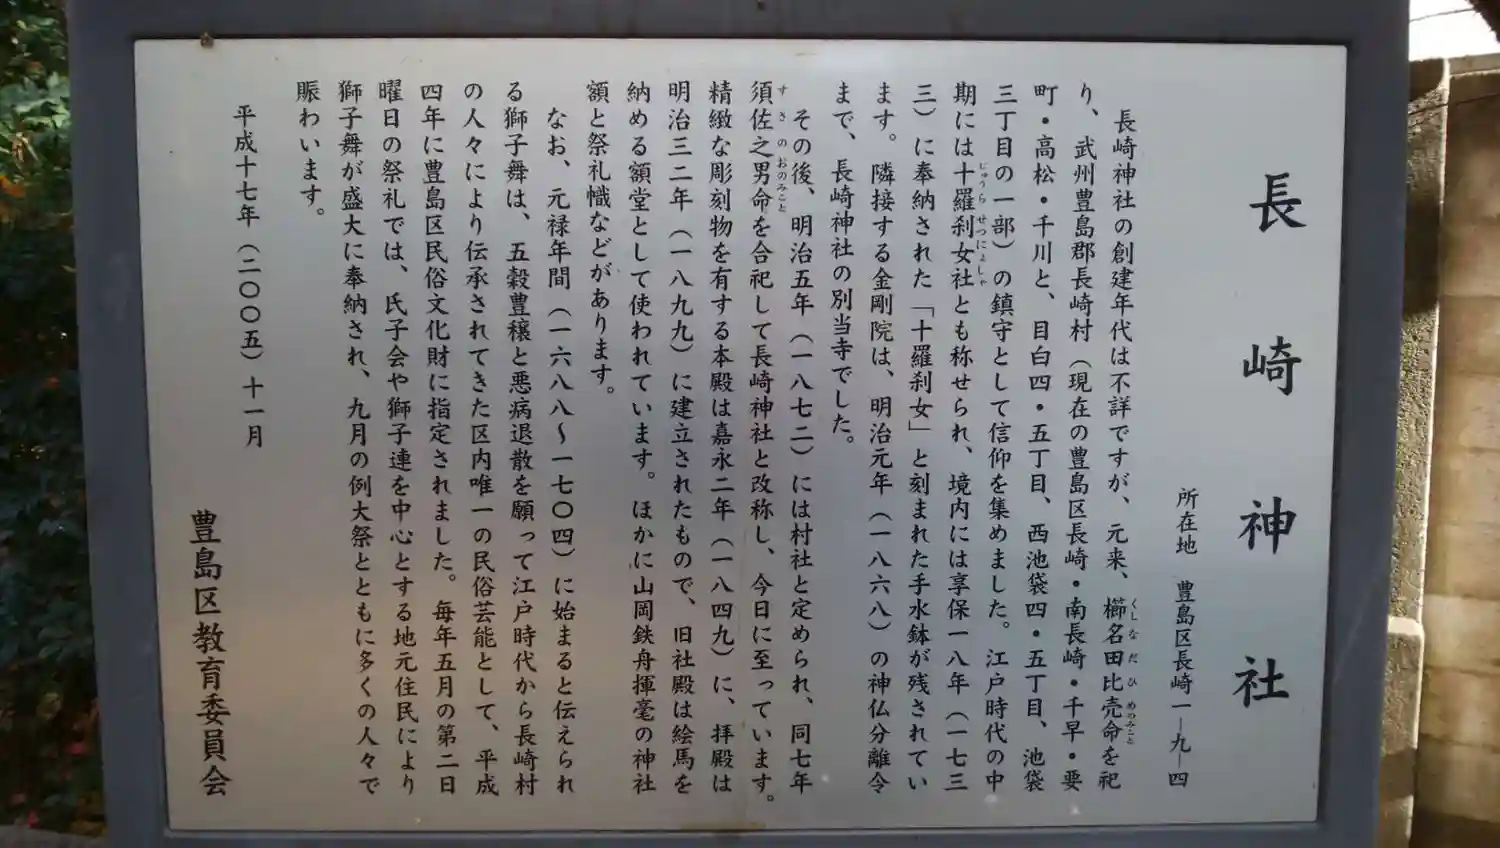 長崎神社
所在地 豊島区長崎一―九―四
長崎神社の創建年代は不詳ですが、元来、櫛名田比売命を祀
くしなだひめのみこと
り、武州豊島郡長崎村（現在の豊島区長崎・南長崎・千早・要
町・高松・千川と、目白四・五丁目、西池袋四・五丁目、池袋
三丁目の一部）の鎮守として信仰を集めました。江戸時代の中
期には十羅刹女社とも称せられ、境内には享保一八年（一七三
じゅうらせつにょしゃ
三）に奉納された「十羅刹女」と刻まれた手水鉢が残されてい
ます。隣接する金剛院は、明治元年（一八六八）の神仏分離令
まで、長崎神社の別当寺でした。
その後、明治五年（一八七二）には村社と定められ、同七年
須佐之男命を合祀して長崎神社と改称し、今日に至っています。
すさのおのみこと
精緻な彫刻物を有する本殿は嘉永二年（一八四九）に、拝殿は
明治三二年（一八九九）に建立されたもので、旧社殿は絵馬を
納める額堂として使われています。ほかに山岡鉄舟揮毫の神社
額と祭礼幟などがあります。
なお、元禄年間（一六八八〜一七〇四）に始まると伝えられ
る獅子舞は、五穀豊穣と悪病退散を願って江戸時代から長崎村
の人々により伝承されてきた区内唯一の民俗芸能として、平成
四年に豊島区民俗文化財に指定されました。毎年五月の第二日
曜日の祭礼では、氏子会や獅子連を中心とする地元住民により
獅子舞が盛大に奉納され、九月の例大祭とともに多くの人々で
賑わいます。
平成十七年（二〇〇五）十一月
豊島区教育委員会